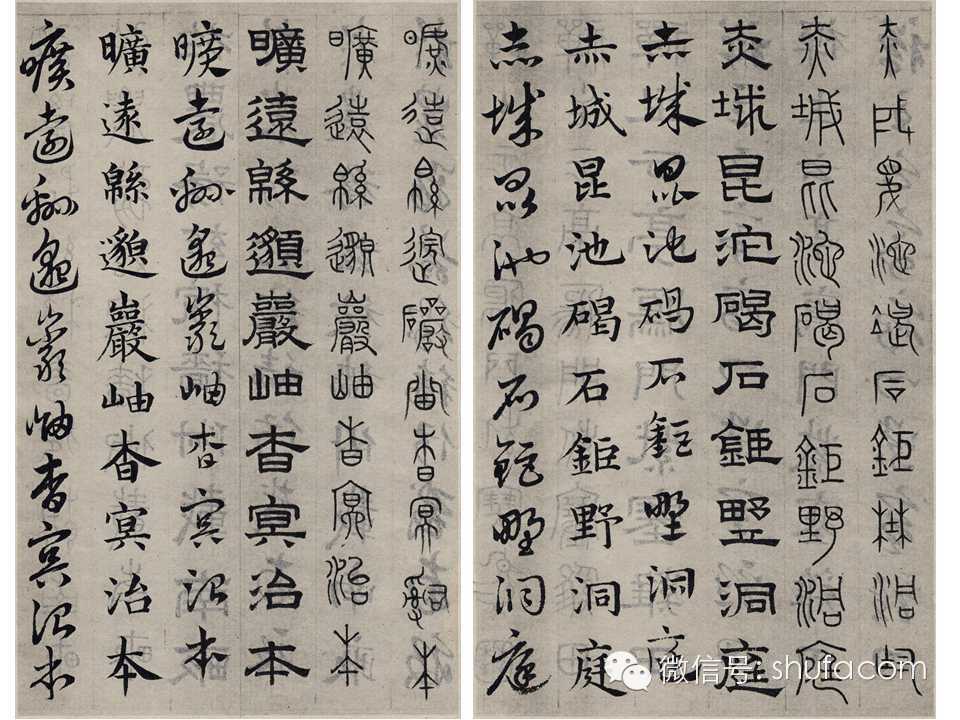 赤城昆池碣石鉅野洞庭
赤城昆池碣石鉅野洞庭
赤城昆池碣石鉅野洞庭
赤城昆池碣石鉅野洞庭
赤城昆池碣石鉅野洞庭
赤城昆池碣石鉅野洞庭
曠遠緜邈巖岫杳冥治本
曠遠緜邈巖岫杳冥治本
曠遠緜邈巖岫杳冥治本
曠遠緜邈巖岫杳冥治本
曠遠緜邈巖岫杳冥治本
曠遠緜邈巖岫杳冥治本
微信号: shufacom